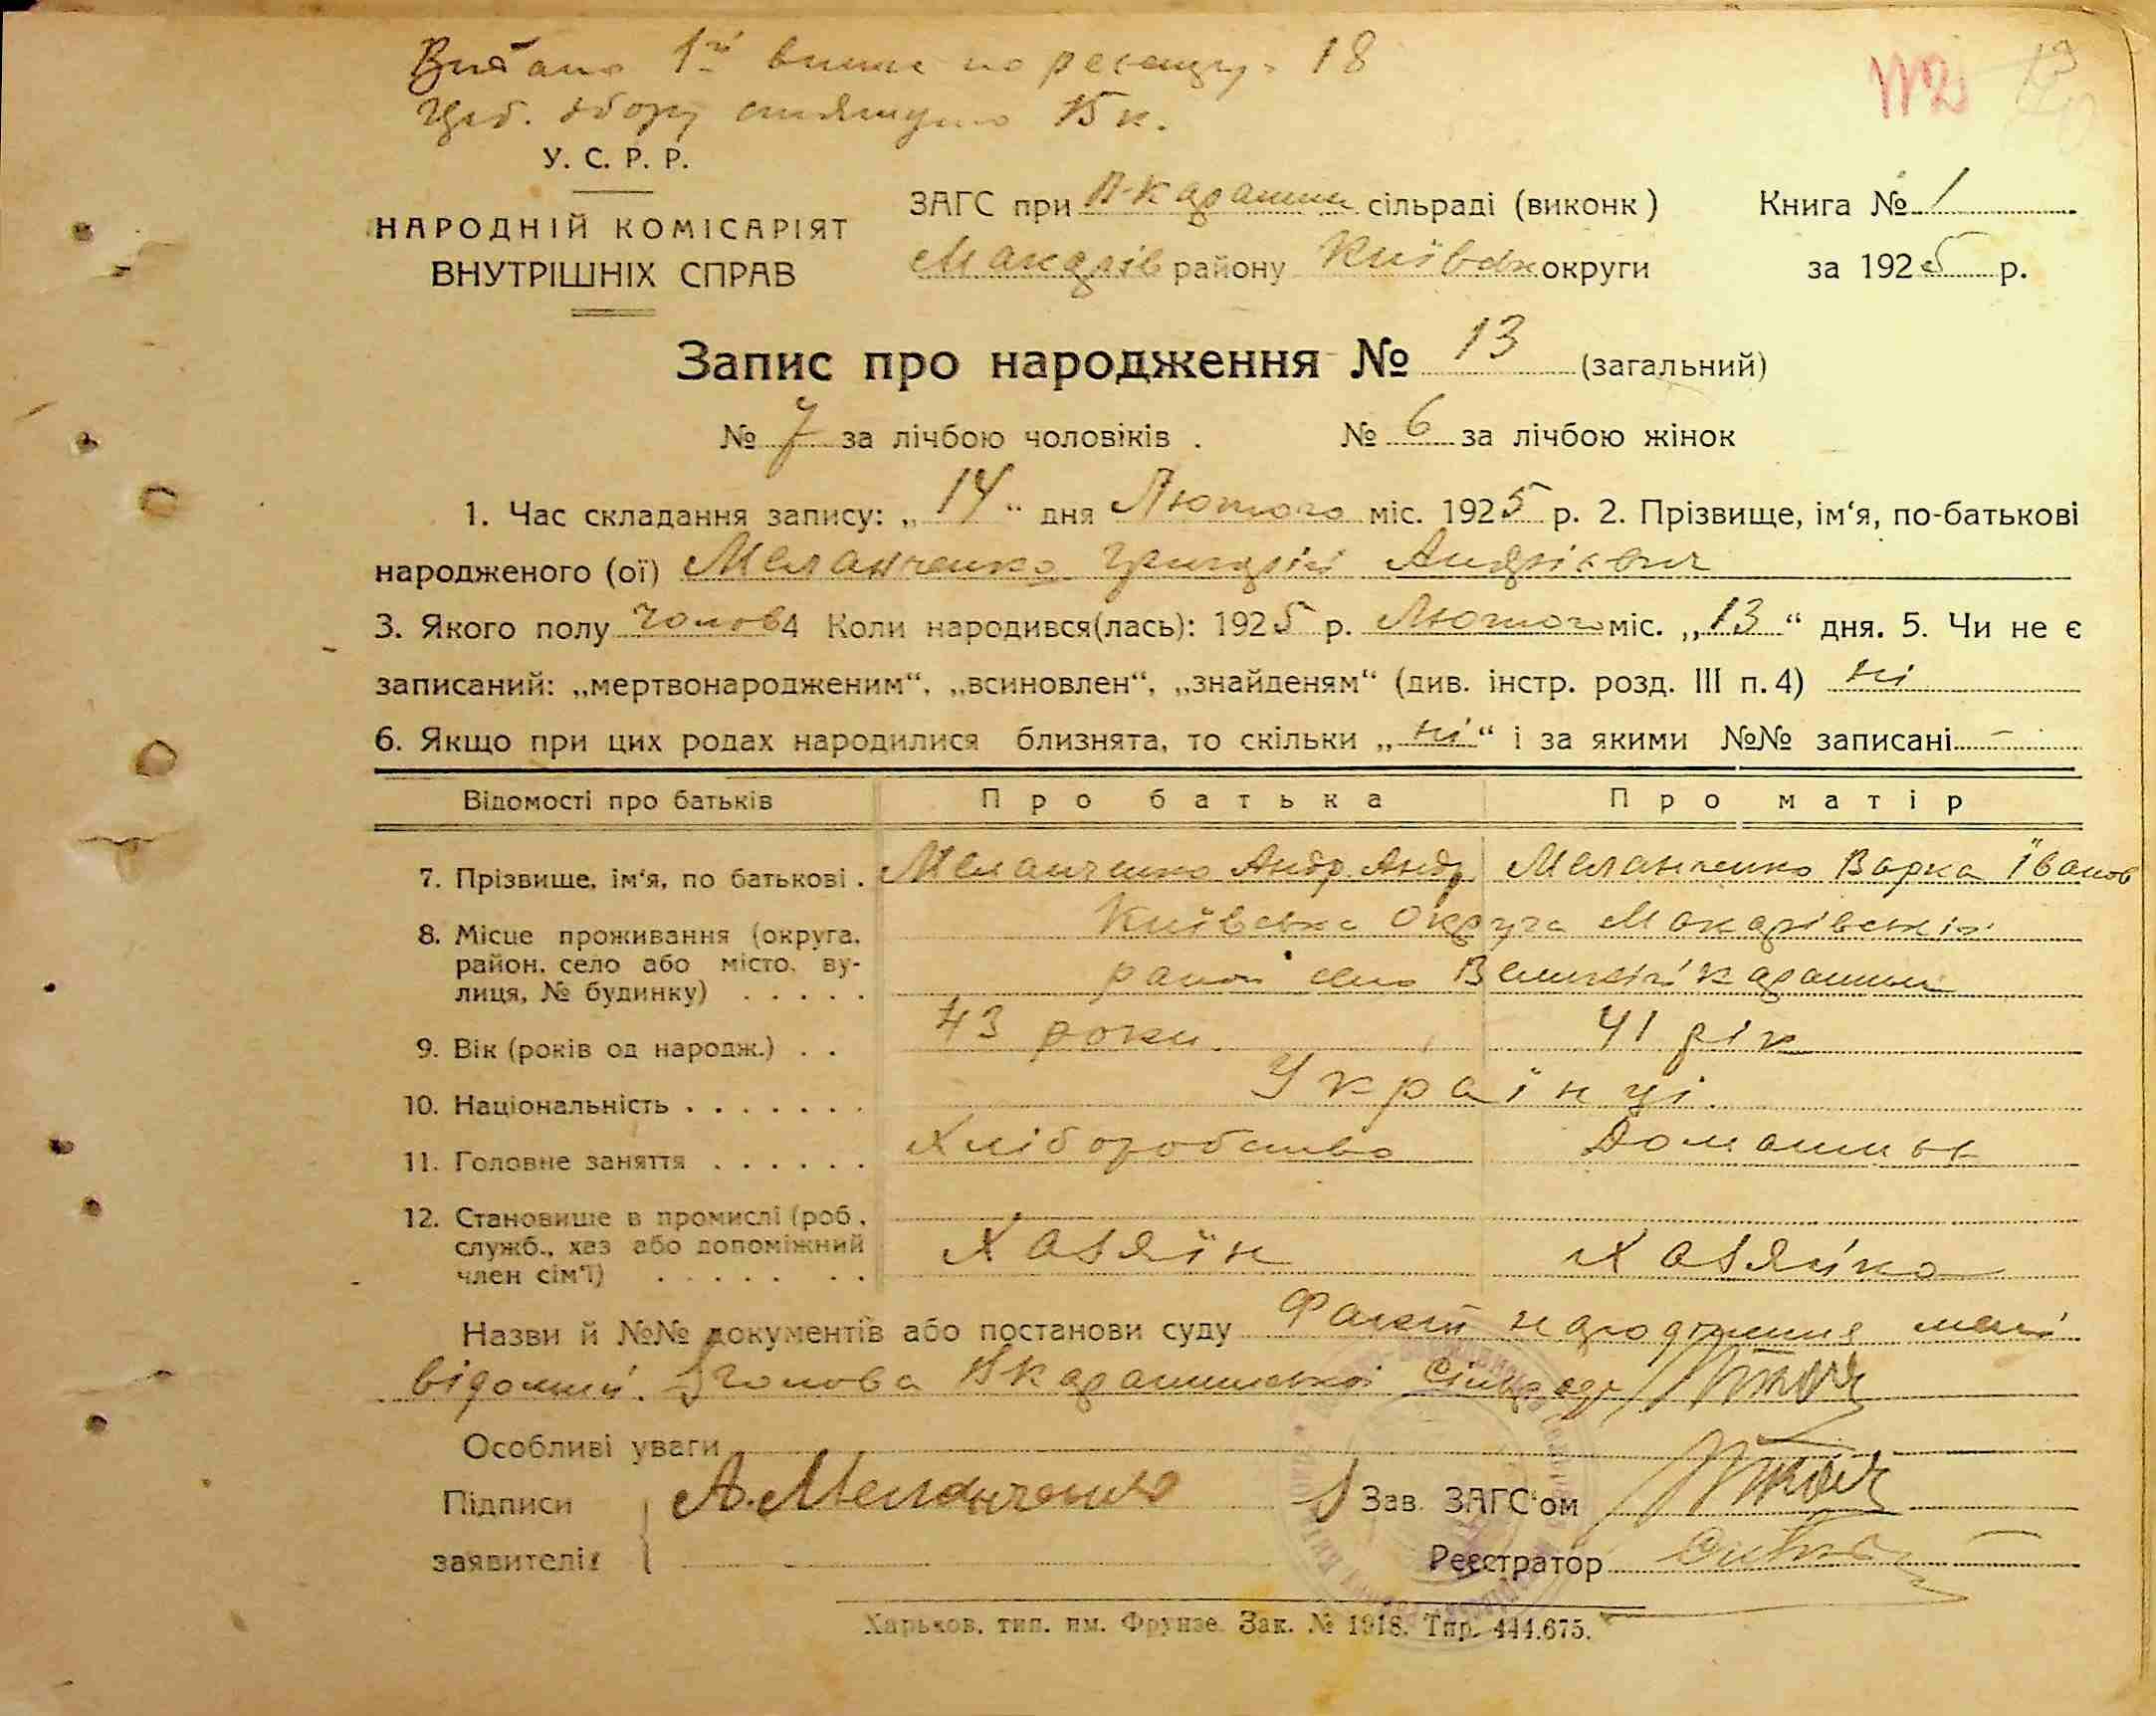 Видано 1й випис по реєстру 18
Церб. збору стягнуто 15 к.
112 13
У. С. Р. Р.
НАРОДНІЙ КОМІСАРІЯТ
ВНУТРІШНІХ СПРАВ
ЗАГС при В-Карашин сільраді (виконк)
Макарів району Київськ округи
Книга № 1
за 1925 р.
Запис про народження № 13 (загальний)
№ 7 за лічбою чоловіків . № 6 за лічбою жінок
1. Час складання запису: „14“ дня Лютого міс. 1925 р. 2. Прізвище, ім‘я, по-батькові
народженого (ої) Меланченко Григорій Андрієвич
3. Якого полу чолов 4 Коли народився(лась): 1925 р. Лютого міс. „13“ дня. 5. Чи не є
записаний: „мертвонародженим“, „всиновлен“, „знайденям“ (див. інстр. розд. III п. 4) ні
6. Якщо при цих родах народилися близнята, то скільки „ні“ і за якими №№ записані –
Відомості про батьків Про батька Про матір
7. Прізвище, ім‘я, по батькові . Меланченко Андр. Андр Меланченко Варка Іванов
8. Місце проживання (округа, Київська Округа Макарівський
район, село або місто, ву- район село Великий Карашин
лиця, № будинку) . . . . .
9. Вік (років од народж.) . . 43 роки. 41 рік
10. Національність . . . . . . . Українці
11. Головне заняття . . . . . . Хліборобство Домашнє
12. Становище в промислі (роб.,
служб., хаз або допоміжний Хазяїн Хазяйка
член сім‘ї) . . . . . . .
Назви й №№ документів або постанови суду Факт народження мені
відомий. Голова Вкарашинської Сільради
Особливі уваги
Підписи А. Меланченко Зав. ЗАГС‘ом
заявителів Реєстратор
Харьков, тип. им. Фрунзе. Зак. № 1918. Тир. 444.675.